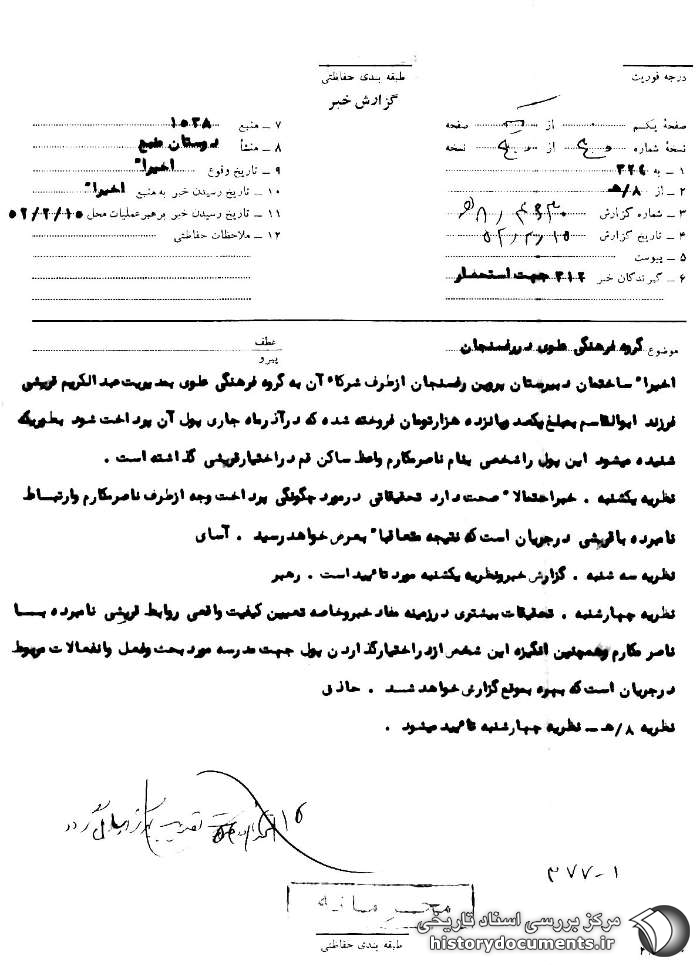 درجه فوریت
طبقه بندی حفاظتی
گزارش خبر
صفحهٔ یکم از صفحه
نسخهٔ شماره از نسخه
۱ ــ به ۳۲۴
۲ ــ از ۸/هـ
۳ ــ شماره گزارش
۴ ــ تاریخ گزارش
۵ ــ پیوست
۶ ــ گیرندگان خبر ۳۱۲ جهت استحضار
۷ ــ منبع ۱۵۲۸
۸ ــ منشأ دوستان منبع
۹ ــ تاریخ وقوع اخیرا"
۱۰ ــ تاریخ رسیدن خبر به منبع اخیرا"
۱۱ ــ تاریخ رسیدن خبر برهبر عملیات محل ۵۲/۲/۱۵
۱۲ ــ ملاحظات حفاظتی
موضوع گروه فرهنگی علوی در رفسنجان
عطف
پیرو
اخیرا" ساختمان دبیرستان پروین رفسنجان ازطرف شرکاء آن به گروه فرهنگی علوی بمدیریت عبدالکریم قریشی
فرزند ابوالقاسم بمبلغ یکصد وپانزده هزارتومان فروخته شده که درآذرماه جاری پول آن پرداخت شود بطوریکه
شنیده میشود این پول را شخصی بنام ناصرمکارم واعظ ساکن قم دراختیارقریشی گذاشته است .
نظریه یکشنبه . خبراحتمالا" صحت دارد تحقیقاتی درمورد چگونگی پرداخت وجه ازطرف ناصرمکارم وارتباط
نامبرده باقریشی درجریان است که نتیجه متعاقبا" بعرض خواهد رسید . آسای
نظریه سه شنبه . گزارش خبرونظریه یکشنبه مورد تائید است . رهبر
نظریه چهارشنبه . تحقیقات بیشتری درزمینه مفاد خبروخاصه تعیین کیفیت واقعی روابط قریشی نامبرده بـا
ناصر مکارم وهمچنین انگیزه این شخص ازدراختیارگذاردن پول جهت مدرسه مورد بحث وفعل وانفعالات مربوط
درجریان است که بهره بموقع گزارش خواهد شد . حاذق
نظریه ۸/هـ ــ نظریه چهارشنبه تائید میشود .
۳۷۷-۱
محرمانه
طبقه بندی حفاظتی
مرکز بررسی اسناد تاریخی
historydocuments.ir